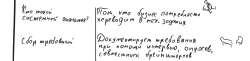 Кто такой системный аналитик?
Тот, кто бизнес потребности переводит в тех. задания
Сбор требований
Документирует требования при помощи интервью, опросов, совместного брейншторма